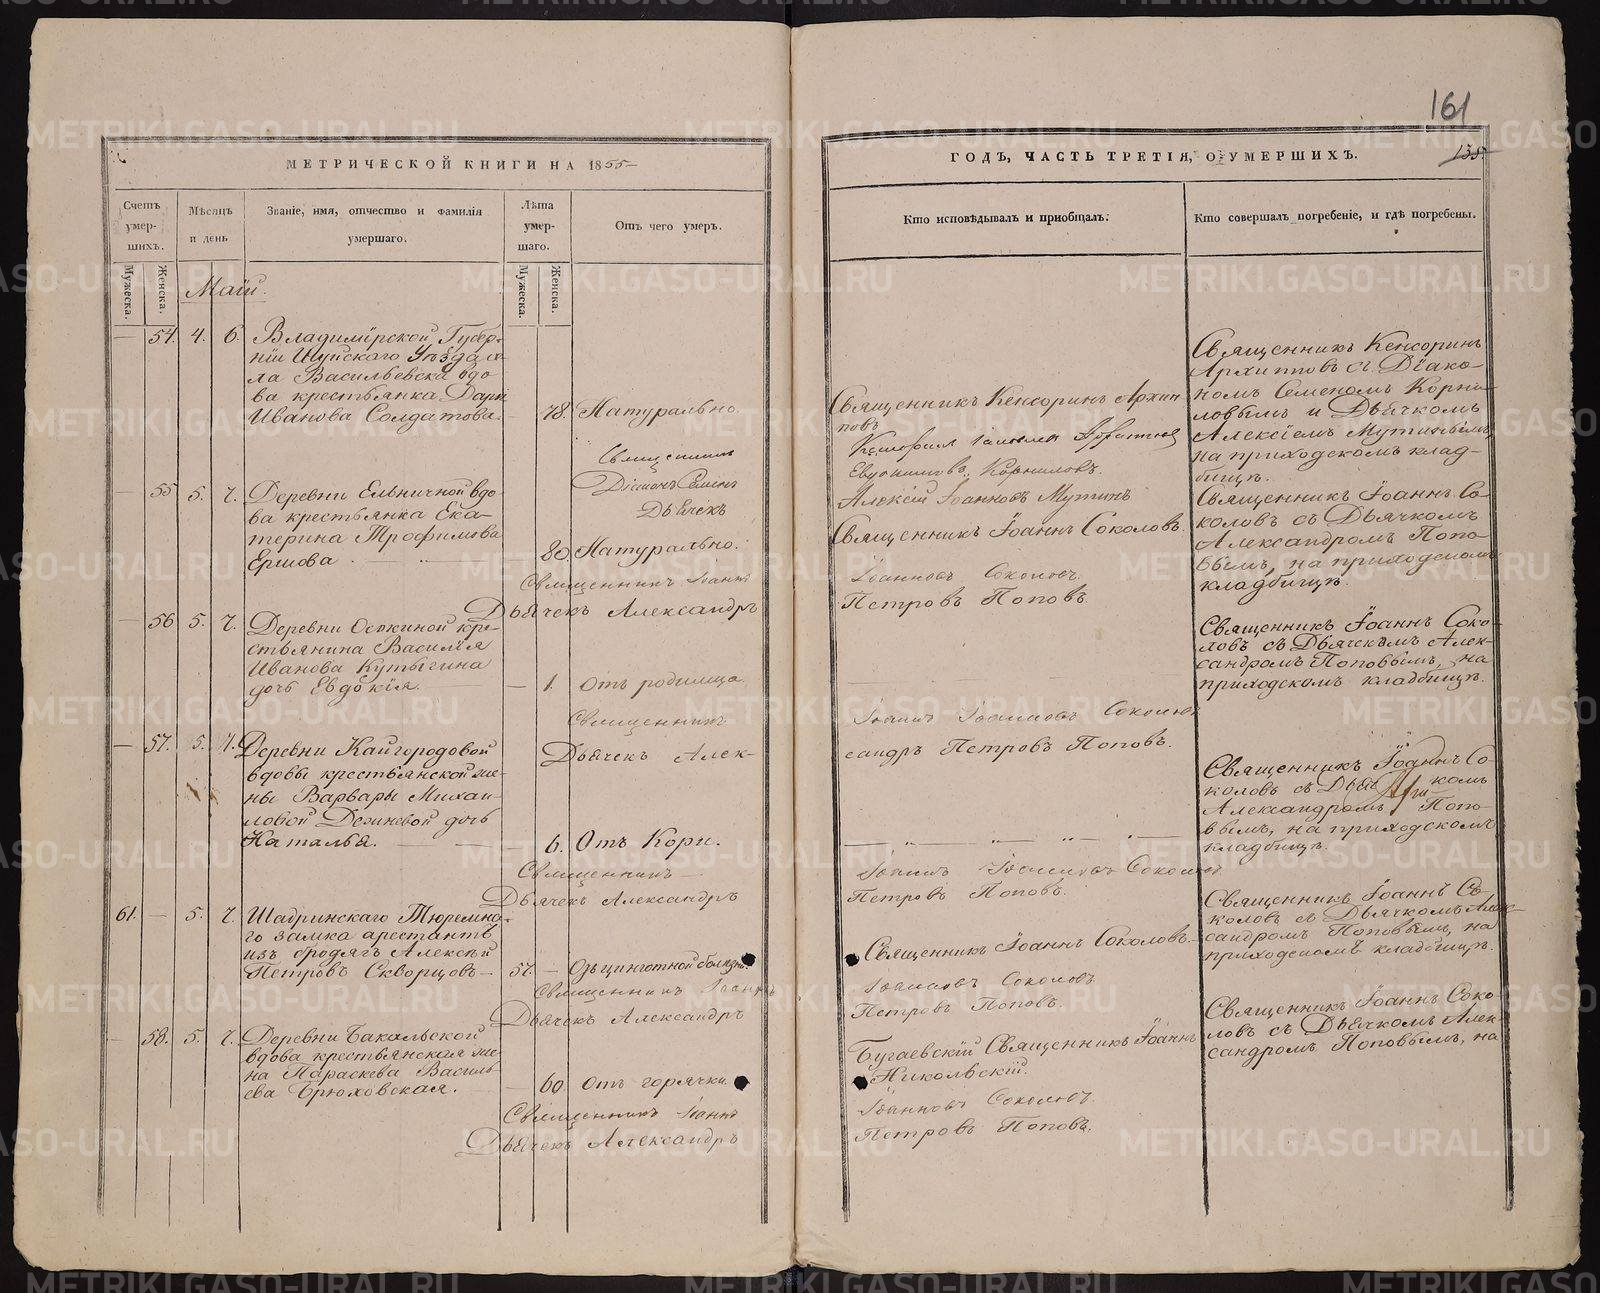 161
МЕТРИЧЕСКОЙ КНИГИ НА 1855
ГОДЪ, ЧАСТЬ ТРЕТІЯ, О УМЕРШИХЪ.
135.
Счетъ умер-шихъ.
Мужеска.
Женска.
Мѣсяцъ и день
Званіе, имя, отчество и фамилія умершаго.
Лѣта умер-шаго.
Мужеска.
Женска.
Отъ чего умеръ.
Кто исповѣдывалъ и пріобщалъ.
Кто совершалъ погребеніе, и гдѣ погребены.
Маій.
— 54. 4. 6.
Владимірской Губер-
ніи Шуйскаго Уѣзда се-
ла Васильевска вдо-
ва крестьянка Дарья
Иванова Солдатова.
78. Натурально.
Священникъ Кенсоринъ Архип
повъ
Священникъ Кенсоринъ
Архипповъ съ Діако-
номъ Семеномъ Корни-
ловымъ и Дьячкомъ
Алексіемъ Мутинымъ,
на приходскомъ клад-
бищѣ.
Священникъ
Діаконъ Семенъ
Евдокимовъ Корниловъ.
Дьячекъ
Алексій Іоанновъ Мутинъ
— 55 5. 7.
Деревни Ельничной вдо-
ва крестьянка Ека-
терина Трофимова
Ершова
80. Натурально.
Священникъ Іоаннъ Соколовъ.
Священникъ Іоаннъ Со-
коловъ съ Дьячкомъ
Александромъ Попо-
вымъ, на приходскомъ
кладбищѣ.
Священникъ Іоаннъ
Іоанновъ Соколовъ.
Дьячекъ Александръ
Петровъ Поповъ.
— 56 5. 7.
Деревни Осокиной кре-
стьянина Василія
Иванова Кутыгина
дочь Евдокія.
— 1. Отъ родимца.
Священникъ Іоаннъ Соко-
ловъ съ Дьячкомъ Алек-
сандромъ Поповымъ, на
приходскомъ кладбищѣ.
Священникъ
Іоаннъ Іоанновъ Соколовъ
Дьячекъ Алек-
сандръ Петровъ Поповъ.
— 57. 5. 7.
Деревни Кайгородовой
вдовы крестьянской же-
ны Варвары Михаи-
ловой Дезиневой дочь
Наталья.
— 6. Отъ Кори.
Священникъ Іоаннъ Со-
коловъ съ Дьячкомъ
Александромъ Попо-
вымъ, на приходскомъ
кладбищѣ.
Священникъ
Іоаннъ Іоанновъ Соколовъ
Дьячекъ Александръ
Петровъ Поповъ.
61. — 5. 7.
Шадринскаго Тюремна-
го замка арестантъ
изъ бродягъ Алексѣй
Петровъ Скворцовъ
57. — Отъ цинготной болѣзни.
Священникъ Іоаннъ Соколовъ.
Священникъ Іоаннъ Со-
коловъ съ Дьячкомъ Алек-
сандромъ Поповымъ, на
приходскомъ кладбищѣ.
Священникъ Іоаннъ
Іоанновъ Соколовъ
Дьячекъ Александръ
Петровъ Поповъ.
— 58. 5. 7.
Деревни Бакальской
вдова крестьянская же-
на Параскева Василь
ева Брюховская.
— 60 Отъ горячки.
Бугаевскій Священникъ Іоаннъ
Никольскій.
Священникъ Іоаннъ Соко-
ловъ съ Дьячкомъ Алек-
сандромъ Поповымъ, на
Священникъ Іоаннъ
Іоанновъ Соколовъ.
Дьячекъ Александръ
Петровъ Поповъ.
METRIKI.GASO-URAL.RU